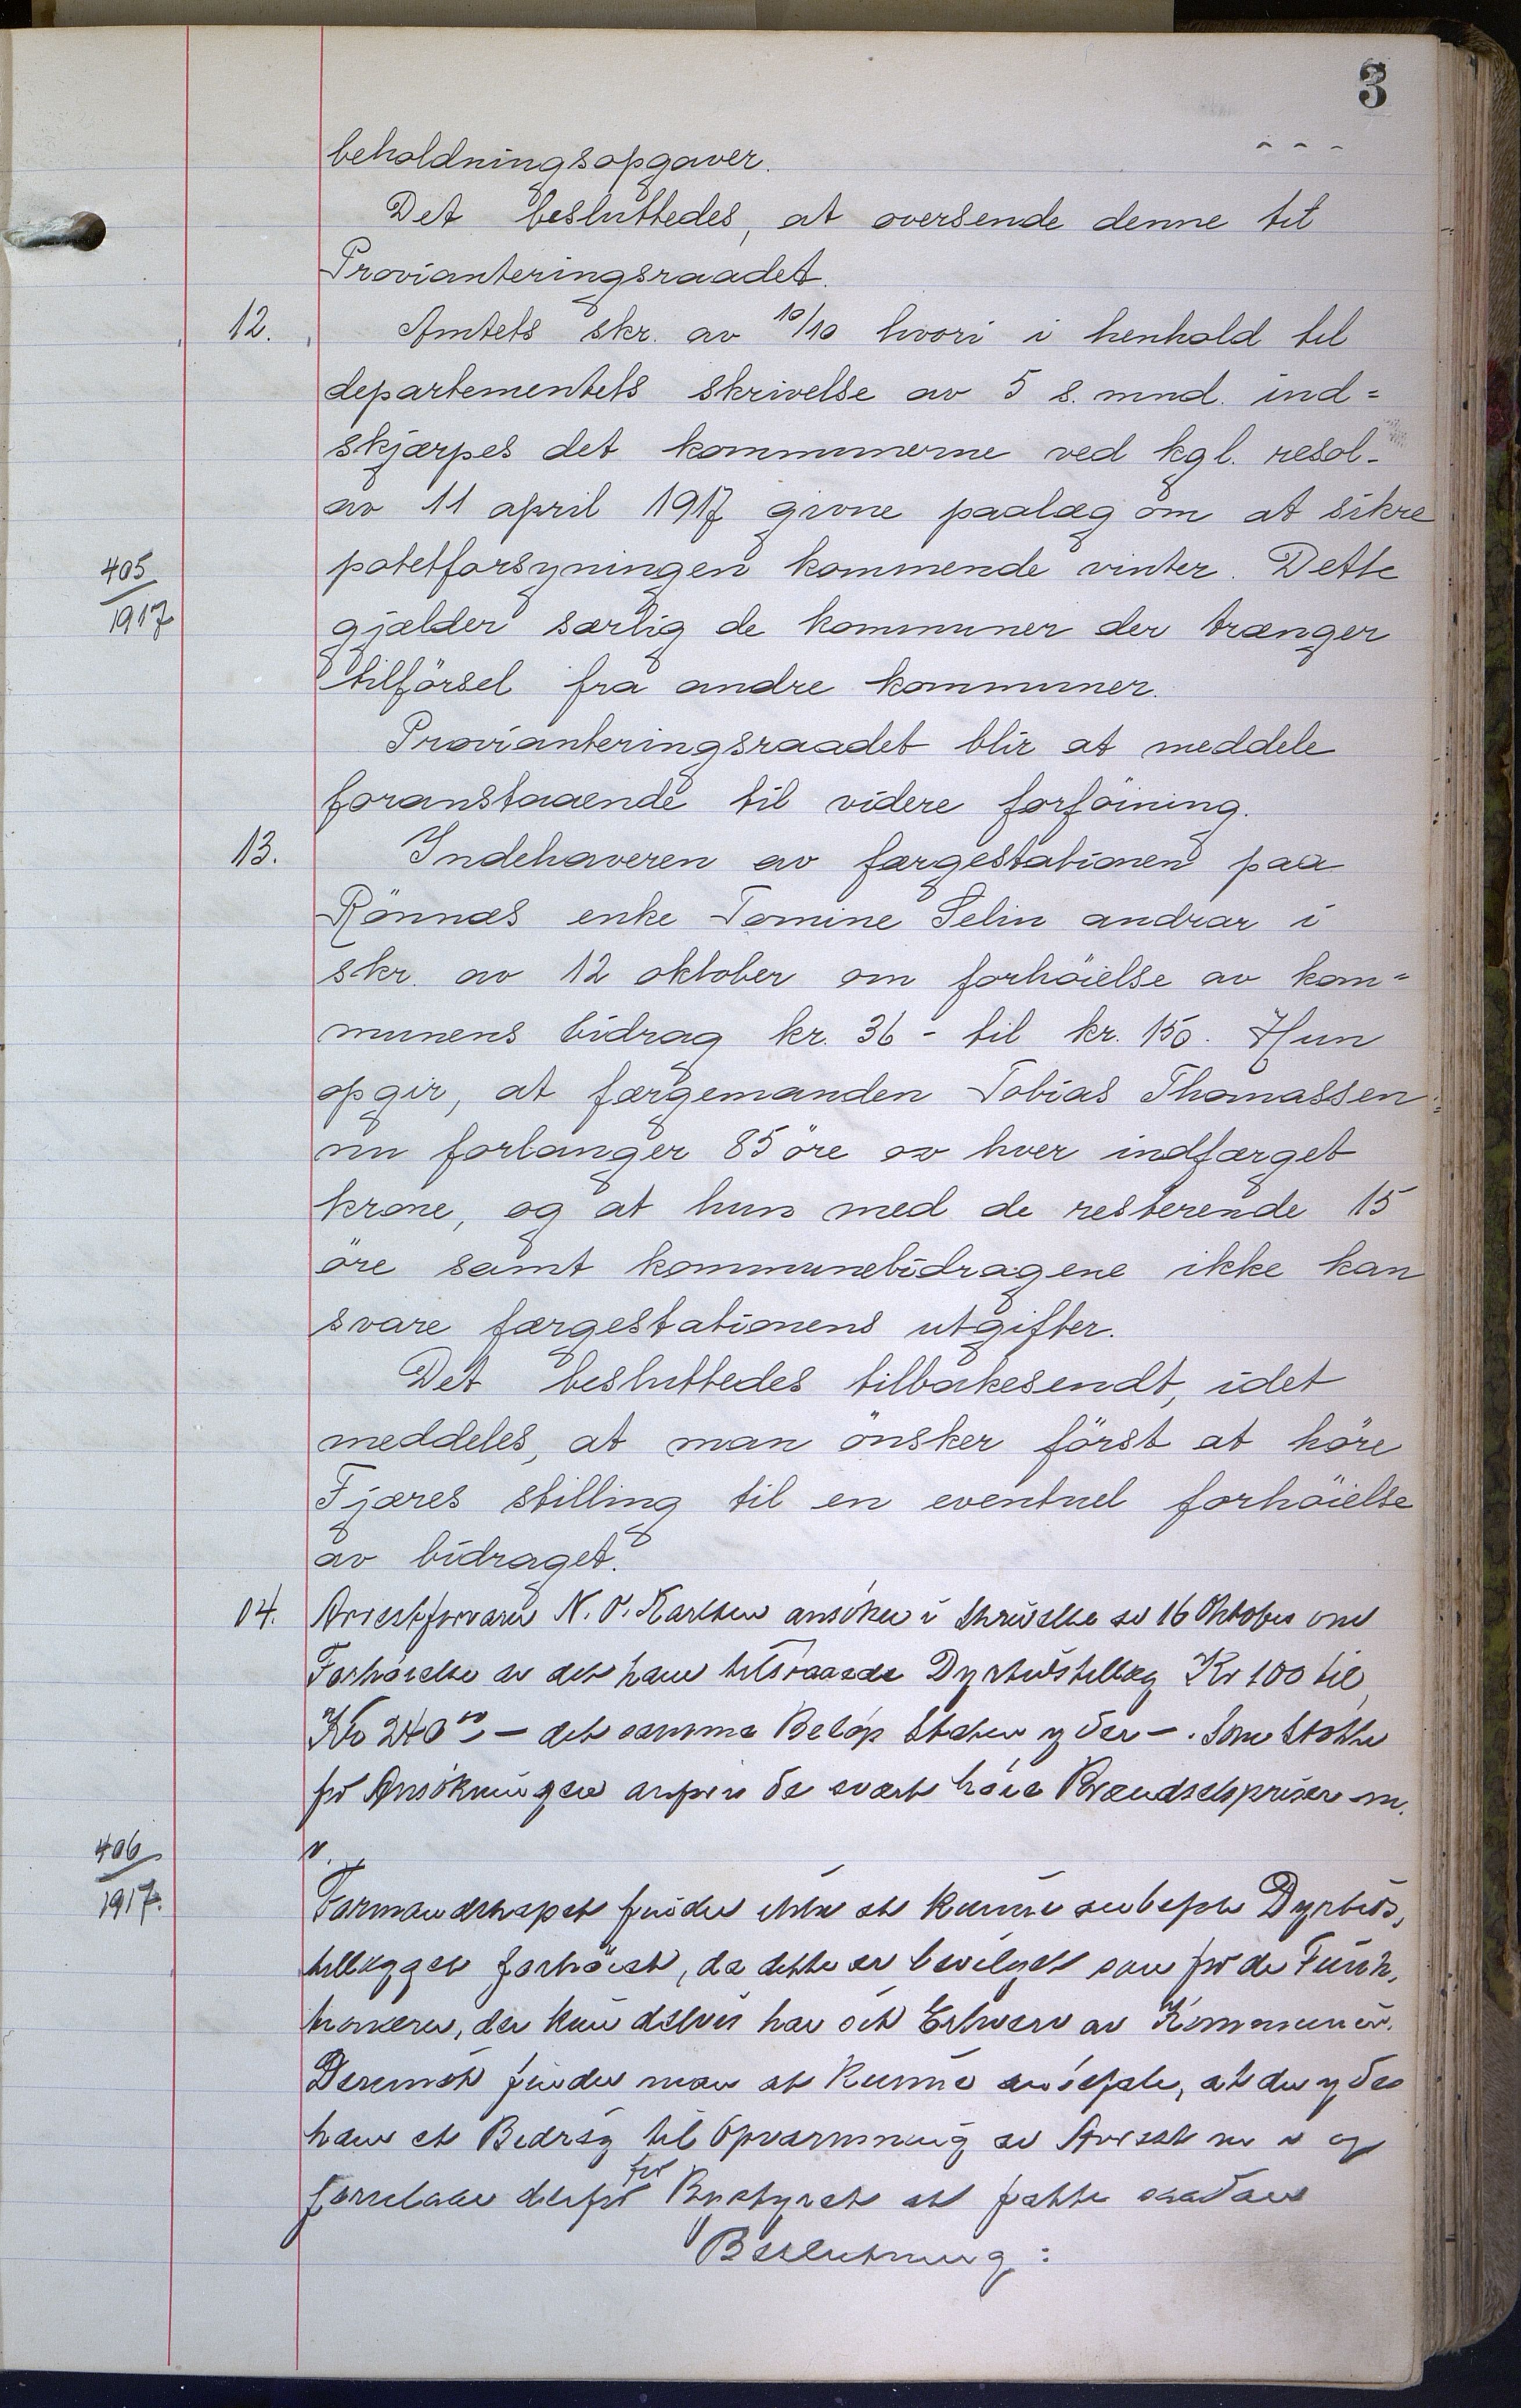 3
beholdningsopgaver.
Det besluttedes, at oversende denne til
Provianteringsraadet.
12. Amtets skr. av 10/10 hvori i henhold til
departementets skrivelse av 5 s. mnd. ind=
skjærpes det kommunerne ved kgl. resol.
av 11 april 1917 givne paalæg om at sikre
405/1917 potetforsyningen kommende vinter. Dette
gjælder særlig de kommuner der trænger
tilförsel fra andre kommuner.
Provianteringsraadet blir at meddele
foranstaaende til videre forföining.
13. Indehaveren av færgestationen paa
Rönnæs enke Tomine Selin andrar i
skr. av 12 oktober om forhöielse av kom=
munens bidrag kr. 36 - til kr. 150. Hun
opgir, at færgemanden Tobias Thomassen
nu forlanger 85 öre av hver indfærget
krone, og at hun med de resterende 15
öre samt kommunebidragene ikke kan
svare færgestationens utgifter.
Det besluttedes tilbakesendt, idet
meddeles, at man önsker först at höre
Fjæres stilling til en eventuel forhöielse
av bidraget.
14. Arrestforvarer N. O. Karlsen ansöker i Skrivelse av 16 Oktober om
Forhöielse av det ham tilstaaede Dyrtidstillæg Kr 100 til
Kr 240 00 - det samme Belöp Staten yder -. Som Stötte
for Ansökningen anföres de svært höie Brændselspriser m.
v.
406/1917. Formandskapet finder ikke at kunne anbefale Dyrtids,
tillægget forhöiet, da dette er bevilget som for de Funk,
tionærer, der kun delvis har sit Erhverv av Kommunen.
Derimot finder man at kunne anbefale, at der ydes
ham et Bidrag til Opvarmning av Arrest m v og
forelaar derfor for Bystyret at fatte saadan
Beslutning: